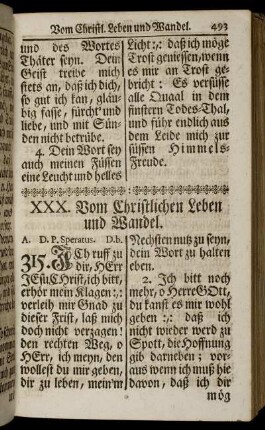 Vom Christl. Leben und Wandel. 493
und des Wortes
Thäter seyn. Dein
Geist treibe mich
stets an, daß ich dich,
so gut ich kan, gläu-
big fasse, fürcht' und
liebe, und mit Sün-
den nicht betrübe.
4. Dein Wort sey
auch meinen Füssen
eine Leucht und helles
Licht:,: daß ich möge
Trost geniessen, wenn
es mir an Trost ge-
bricht: Es versüsse
alle Quaal in dem
finstern Todes-Thal,
und führ endlich aus
dem Leide mich zur
süssen Himmels-
Freude.
XXX. Vom Christlichen Leben
und Wandel.
A. D. P. Speratus. D. b.
315. ICh ruff zu
dir, HErr
JEsu Christ, ich bitt,
erhör mein Klagen:,:
verleih mir Gnad zu
dieser Frist, laß mich
doch nicht verzagen!
den rechten Weg, o
HErr, ich meyn, den
wollest du mir geben,
dir zu leben, mein'm
Nechsten nutz zu seyn,
dein Wort zu halten
eben.
2. Ich bitt noch
mehr, o HErre GOtt,
du kanst es mir wohl
geben:,: daß ich
nicht wieder werd zu
Spott, die Hoffnung
gib darneben; vor-
aus wenn ich muß hie
davon, daß ich dir
mög